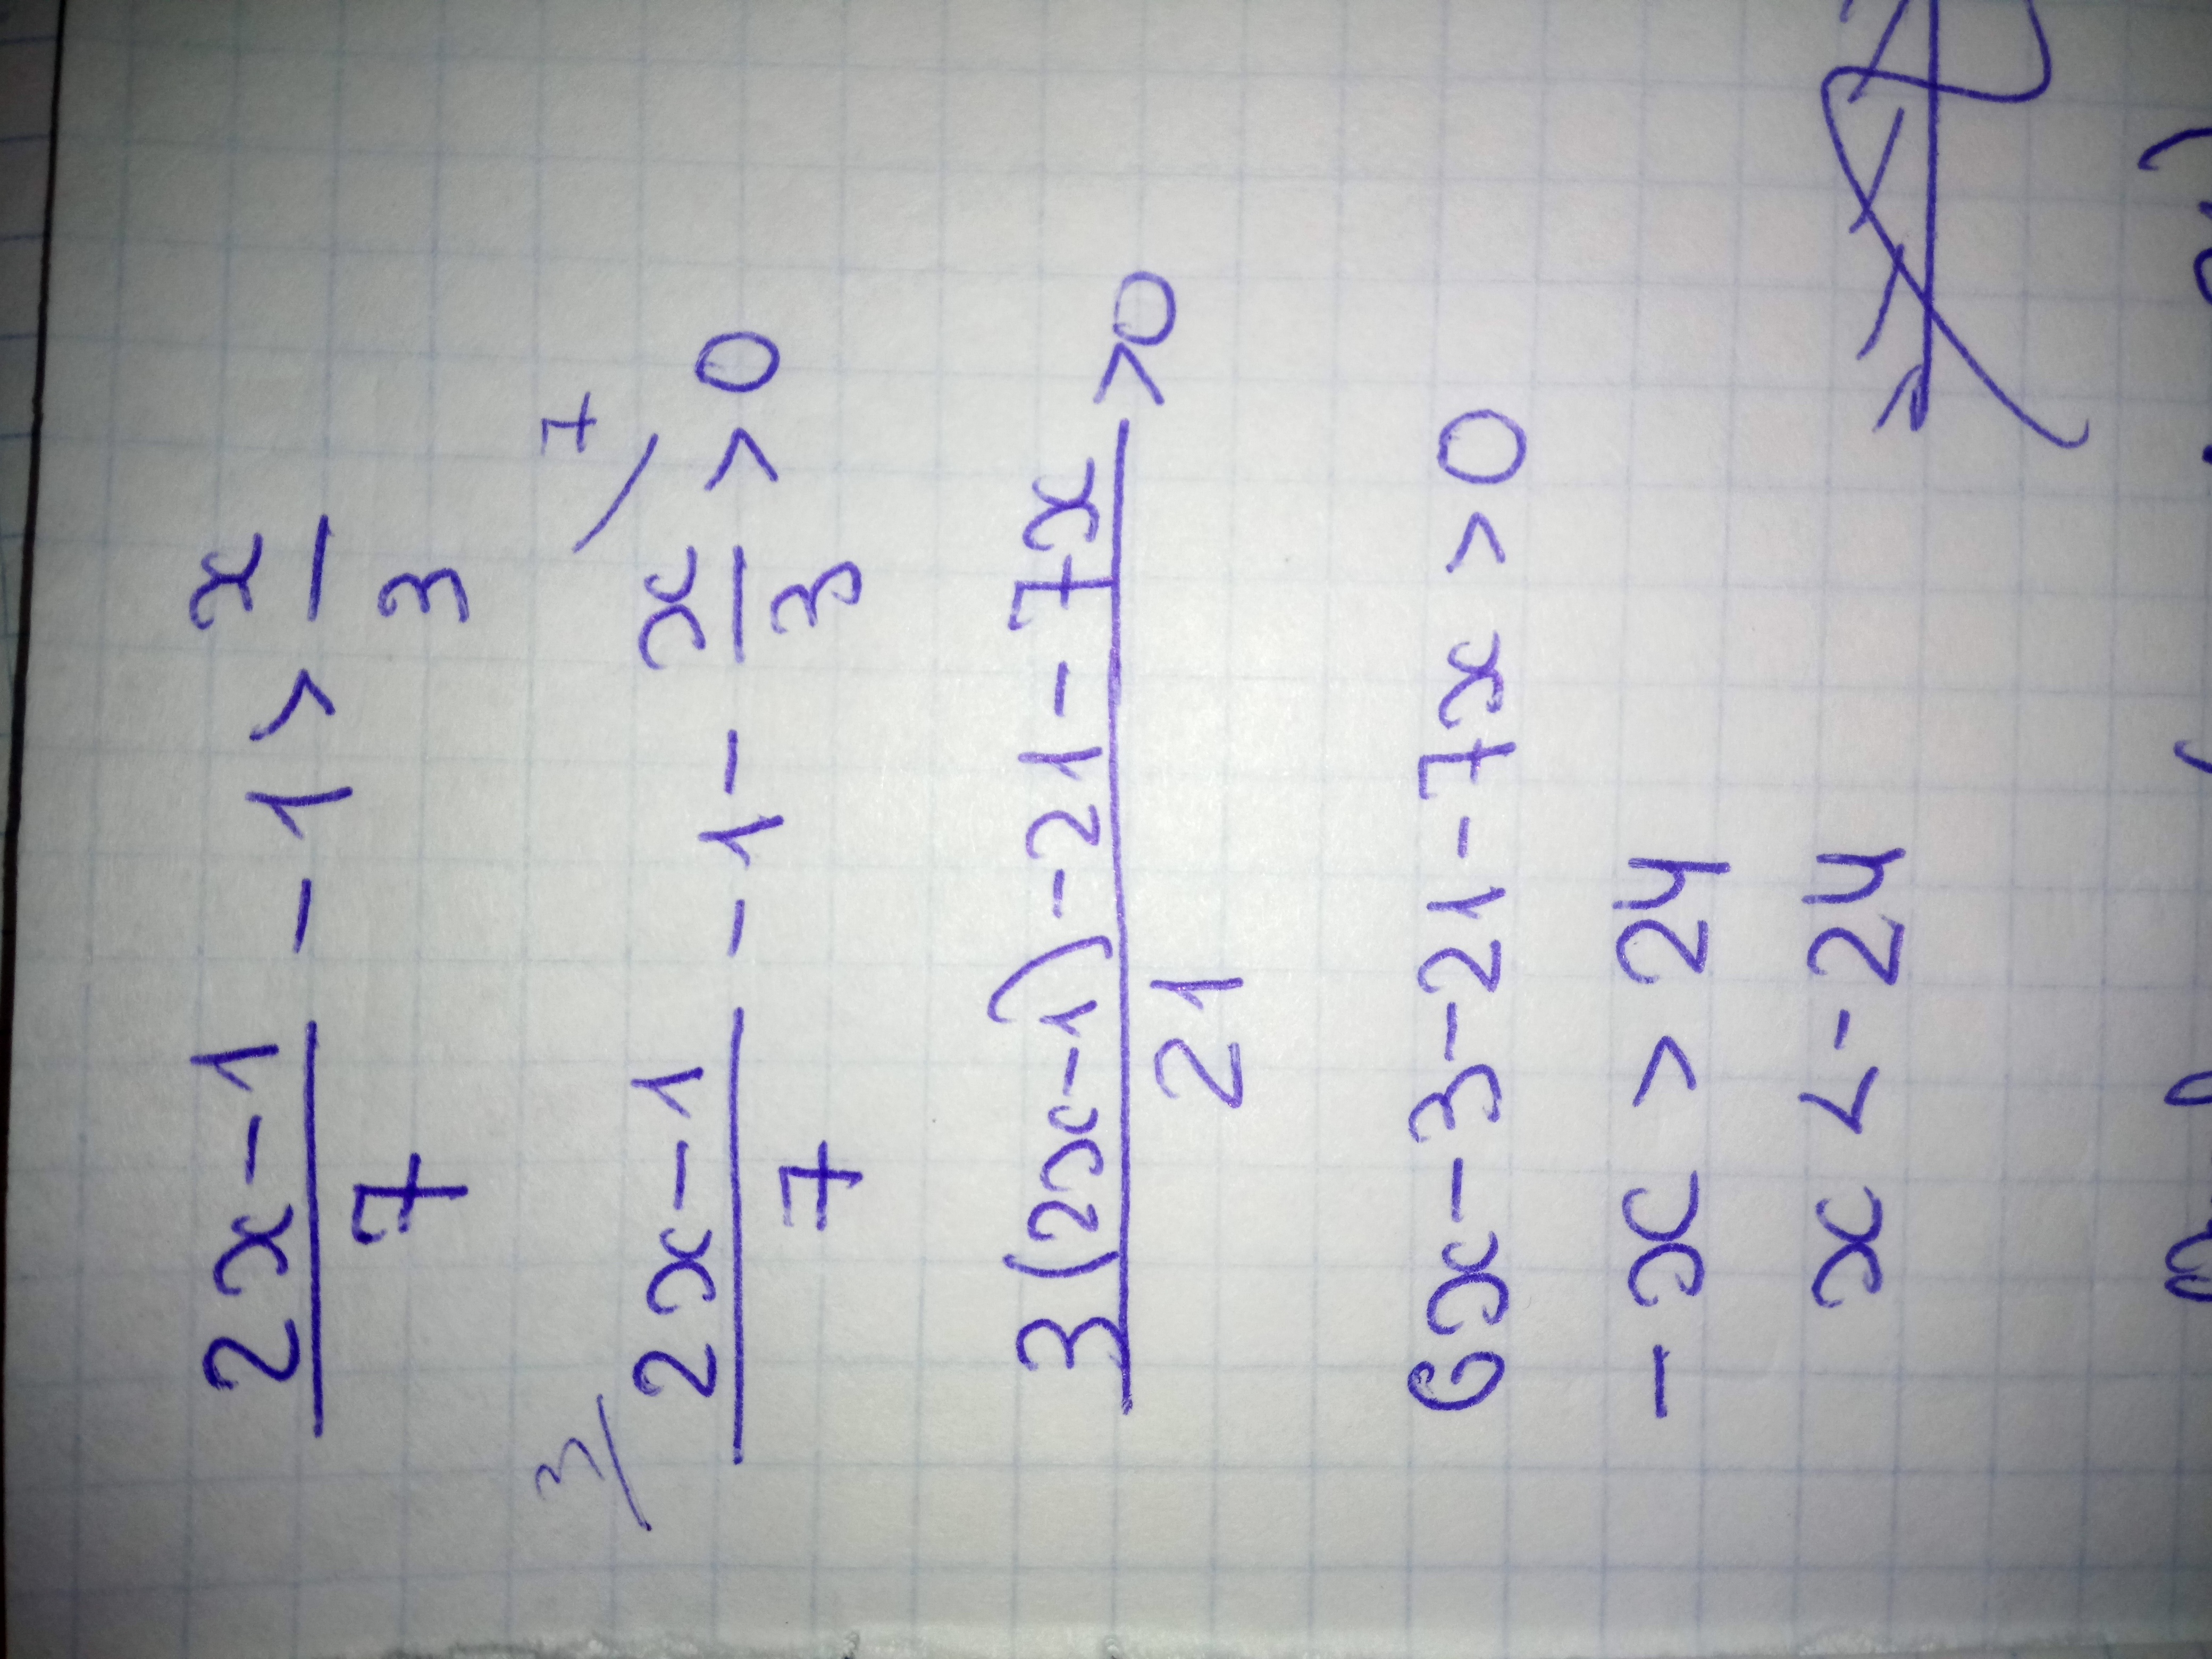 (2x-1)/7 - 1 > x/3
3/ (2x-1)/7 - 1 - x/3 /7 > 0
(3(2x-1)-21-7x)/21 > 0
6x-3-21-7x>0
-x > 24
x < -24